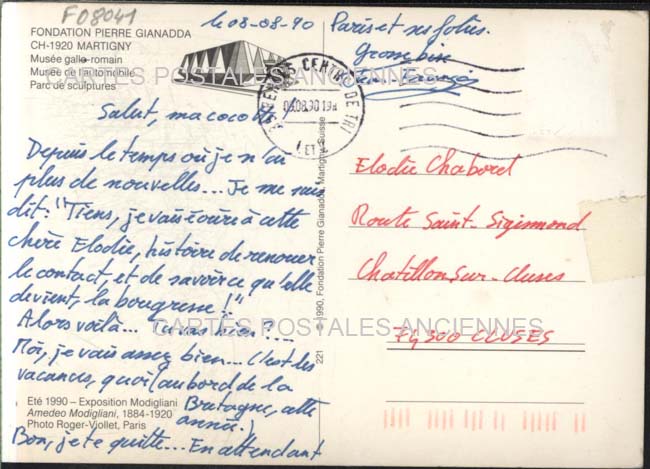 F08041
FONDATION PIERRE GIANADDA
CH-1920 MARTIGNY
Musée gallo-romain
Musée de l'automobile
Parc de sculptures
le 08-08-90
Salut, ma cocotte,
Depuis le temps où je n'ai
plus de nouvelles... Je me suis
dit: "Tiens, je vais écrire à cette
chère Elodie, histoire de renouer
le contact, et de savoir ce qu'elle
devient, la bougresse!"
Alors voilà... Tu vas bien?...
Moi, je vais assez bien... C'est les
vacances, quoi (au bord de la
Bretagne, cette
année.)
Bon, je te quitte... En attendant
Paris et ses folies.
Grosse bise
Eté 1990 – Exposition Modigliani
Amedeo Modigliani, 1884-1920
Photo Roger-Viollet, Paris
221 © 1990, Fondation Pierre Gianadda, Martigny, Suisse
CENTRE DE TRI
08.08.90 19H
Elodie Chabord
Route Saint-Sigismond
Chatillon-sur-Cluses
74300 CLUSES
CARTES POSTALES ANCIENNES
CARTES POSTALES ANCIENNES